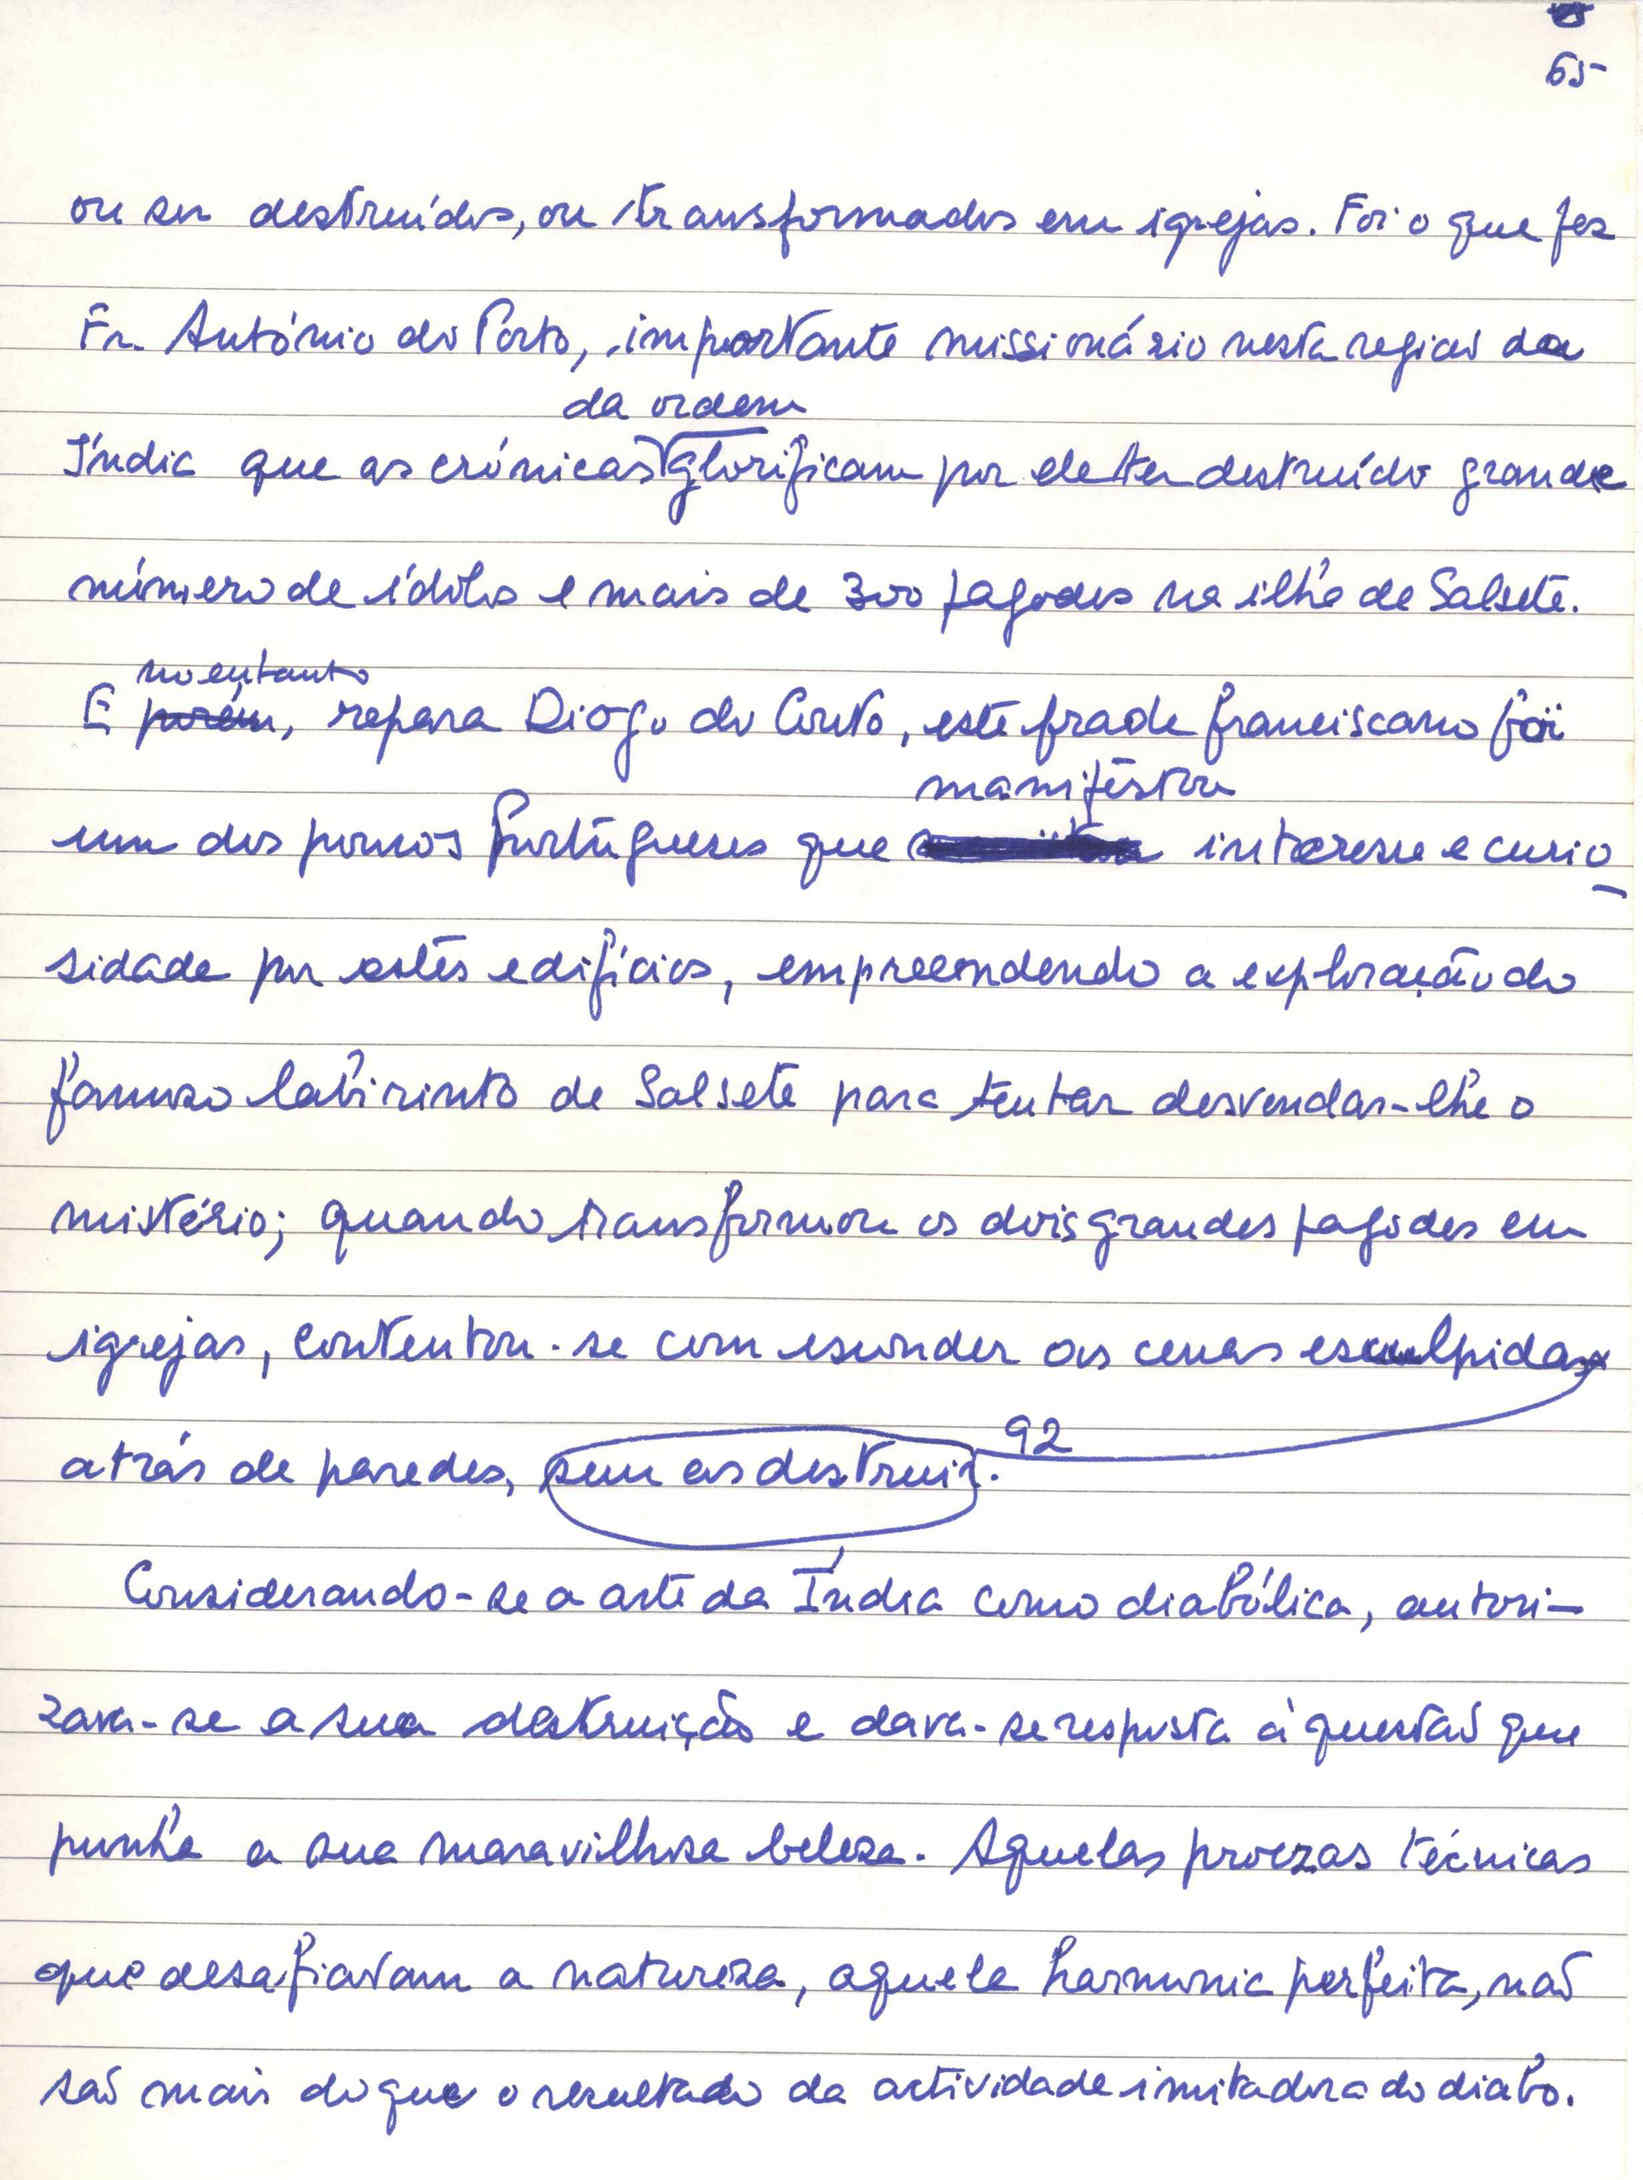 65
ou ser destruídos, ou transformados em igrejas. Foi o que fez
Fr. António do Porto, importante missionário nesta região da
da ordem
Índia que as crónicas glorificam por ele ter destruído grande
número de ídolos e mais de 300 pagodes na ilha de Salsete.
no entanto
E porém, repara Diogo do Couto, este frade franciscano foi
manifestou
um dos poucos Portugueses que interesse e curio
sidade por estes edifícios, empreendendo a exploração do
famoso labirinto de Salsete para tentar desvendar-lhe o
mistério; quando transformou os dois grandes pagodes em
igrejas, contentou-se com esconder as cenas esculpidas
92
atrás de paredes, sem as destruir.
Considerando-se a arte da Índia como diabólica, autori-
zava-se a sua destruição e dava-se resposta à questão que
punha a sua maravilhosa beleza. Aquelas proezas técnicas
que desafiavam a natureza, aquela harmonia perfeita, não
são mais do que o resultado da actividade imitadora do diabo.